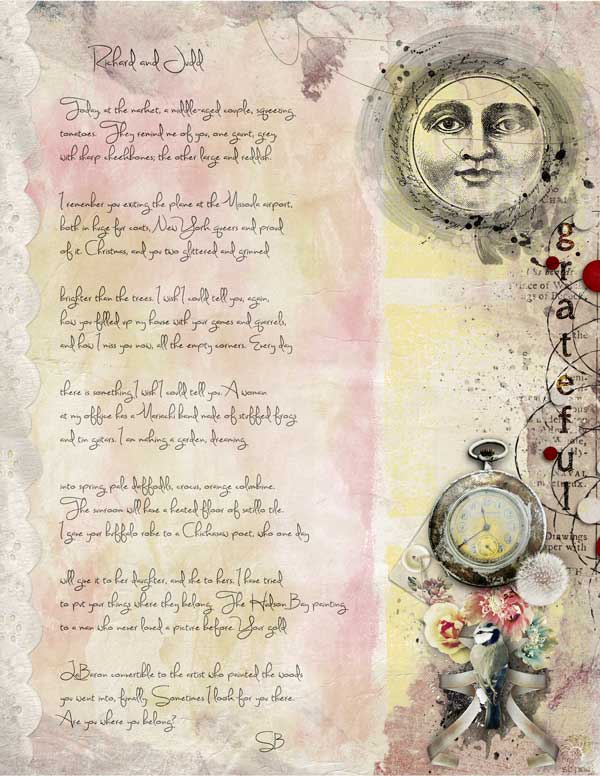 Richard and Judd
Today, at the market, a middle-aged couple, squeezing
tomatoes. They remind me of you, one gaunt, grey,
with sharp cheekbones; the other large and reddish.
I remember you exiting the plane at the Missoula airport,
both in huge fur coats, New York queers and proud
of it. Christmas, and you two glittered and grinned
brighter than the trees. I wish I could tell you, again,
how you filled up my house with your games and quarrels,
and how I miss you now, all the empty corners. Every day
there is something I wish I could tell you. A woman
at my office has a Mariachi band made of stuffed frogs
and tin guitars. I am making a garden, dreaming
into spring, pale daffodils, crocus, orange colmbine.
The sunroom will have a heated floor of satillo tile.
I gave your buffalo robe to a Chickasaw poet, who one day
will give it to her daughter, and she to hers. I have tried
to put your things where they belong. The Hudson Bay painting
to a man who never loved a picture before. Your gold
LeBaron convertible to the artist who painted the woods
you went into, finally. Sometimes I look for you there.
Are you where you belong?
SB
grateful
CHRI
Drawings
per with